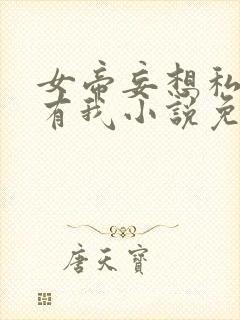 女帝妄想私
有我小说免
唐天宝